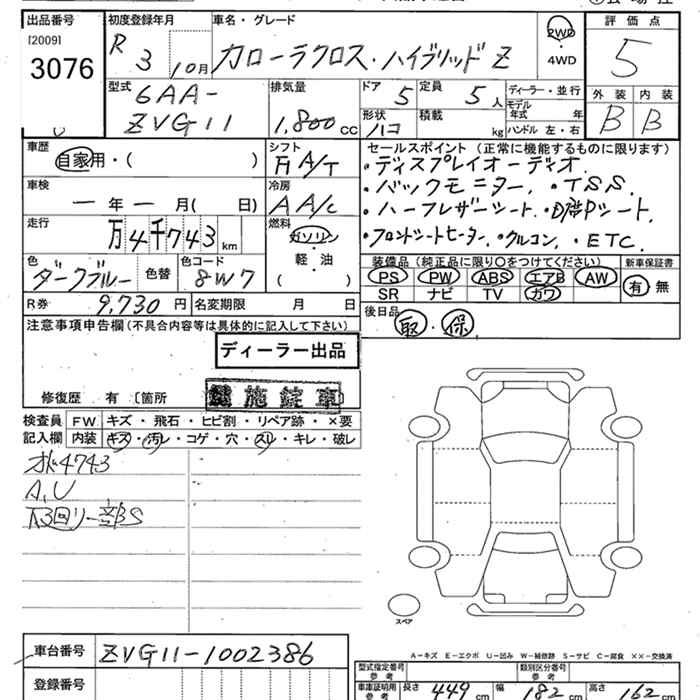 出品番号 初度登録年月 車名・グレード 評価点
[2009] R 3 10月 カローラクロス・ハイブリッド Z 2WD ・ 4WD 5
3076
型式 6AA-ZVG11 排気量 1,800 CC ドア 5 定員 5人 ディーラー・並行 外装 内装
形状 ハコ 積載 kg モデル年式 年 ハンドル 左・右 B B
車歴 自家用・( ) シフト F A/T セールスポイント (正常に機能するものに限ります)
・ディスプレイオーディオ
車検 ー年ー月( 日) 冷房 A A/C ・バックモニター. ・TSS.
走行 万4千743km 燃料 ガソリン 軽・油 ( ) ・ハーフレザーシート. ・D席Pシート.
・フロントシートヒーター. クルコン. ・ETC.
色 ダークブルー 色替 色コード 8W7 装備品(純正品に限り○をつけてください) 新車保証書
PS PW ABS エアB AW 有・無
SR ナビ TV カワ
R券 9,730円 名変期限 月 日 後日品 取・保
注意事項申告欄(不具合内容等は具体的に記入して下さい)
ディーラー出品
修復歴 有 〔箇所 施錠車
検査員 FW キズ・飛石・ヒビ割・リペア跡・×要
記入欄 内装 キズ・汚レ・コゲ・穴・スレ・キレ・破レ
4743
A,U
下回リ一部S
スペア
A－キズ E－エクボ U－凹み W－補修跡 S－サビ C－腐食 ××－交換済
車台番号 ZVG11-1002386 型式指定番号 参考 類別区分番号 参考
登録番号 車庫証明用 参考 長さ 449cm 幅 182cm 高さ 162cm